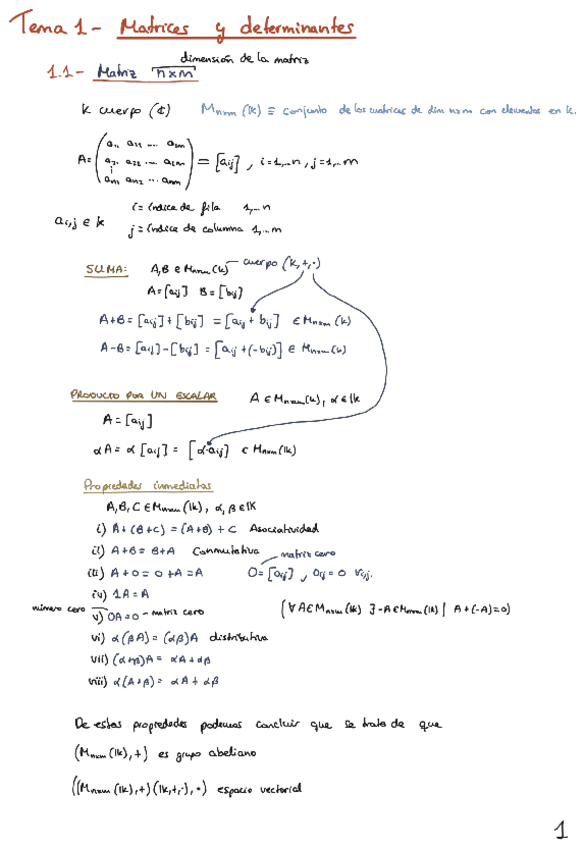 Tema 1- Matrices y determinantes
dimensión de la matriz
1.1- Matriz n×m
k cuerpo (ℂ) Mn×m (k) ≡ conjunto de las matrices de dim n×m con elementos en k.
A = (a11 a12 ... a1m
a21 a22 ... a2m
an1 an2 ... anm) = [aij] , i=1,...n , j=1,...m
i = índice de fila 1,...n
ai,j ∈ k
j = índice de columna 1,...m
SUMA: A,B ∈ Mn×m (k) cuerpo (k,+,·)
A=[aij] B=[bij]
A+B = [aij] + [bij] = [aij + bij] ∈ Mn×m (k)
A-B = [aij] - [bij] = [aij + (-bij)] ∈ Mn×m (k)
PRODUCTO POR UN ESCALAR A ∈ Mn×m (k), α ∈ lk
A = [aij]
αA = α [aij] = [α·aij] ∈ Mn×m (lk)
Propiedades inmediatas
A,B,C ∈ Mn×m (lk), α, β ∈ lK
i) A+(B+C) = (A+B) + C Asociatividad
ii) A+B = B+A Conmutativa
matriz cero
iii) A+0 = 0+A = A 0=[0ij] , 0ij = 0 ∀i,j.
iv) 1A = A
número cero v) 0A=0 - matriz cero (∀A∈Mn×m (lk) ∃-A∈Mn×m (lk) | A+(-A)=0)
vi) α(βA) = (αβ)A distributiva
vii) (α+β)A = αA + αβ
viii) α(A+β) = αA + αβ
De estas propiedades podemos concluir que se trata de que
(Mn×m (lk), +) es grupo abeliano
((Mn×m (lk),+) (lk,+,·), ·) espacio vectorial
1